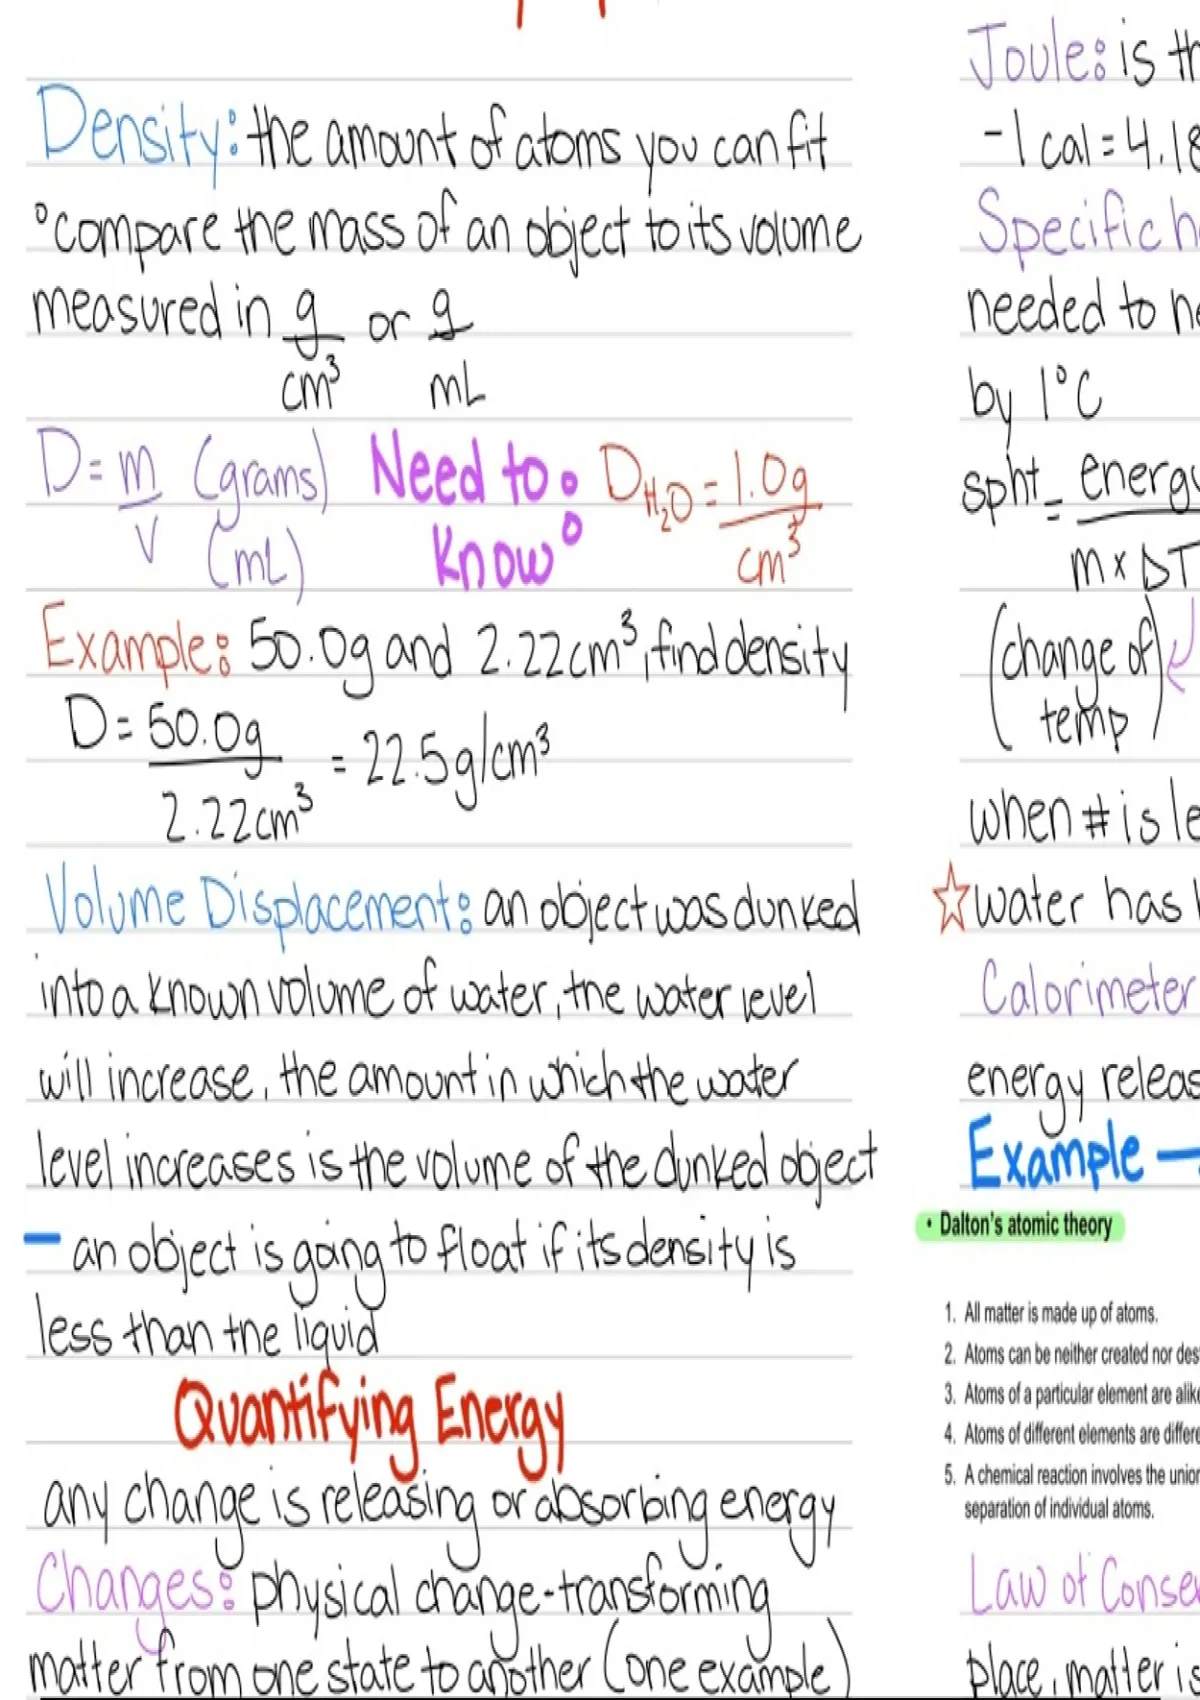 Density: the amount of atoms you can fit
°compare the mass of an object to its volume
measured in g/cm³ or g/mL
D = m/V (grams) (mL) Need to Know: D H₂O = 1.0g/cm³
Example: 50.0g and 2.22cm³, find density
D = 50.0g/2.22cm³ = 22.5g/cm³
Volume Displacement: an object was dunked
into a known volume of water, the water level
will increase, the amount in which the water
level increases is the volume of the dunked object
- an object is going to float if its density is
less than the liquid
Quantifying Energy
any change is releasing or absorbing energy
Changes: physical change - transforming
matter from one state to another (one example)
Joule: is
- 1 cal = 4.18
Specific
needed to
by 1°C
spht = energy
m x ΔT
(change of
temp)
when # is
☆ water has
Calorimeter
energy
Example
• Dalton's atomic theory
1. All matter is made up of atoms.
2. Atoms can be neither created nor
3. Atoms of a particular element are
4. Atoms of different elements are
5. A chemical reaction involves the
separation of individual atoms.
Law of
place, matter is